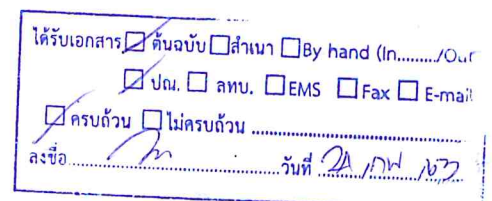 ได้รับเอกสาร ☑ ต้นฉบับ ☐ สำเนา ☐ By hand (In........./Out
☑ ปณ. ☐ ลทบ. ☐ EMS ☐ Fax ☐ E-mail
☑ ครบถ้วน ☐ ไม่ครบถ้วน ............................................
ลงชื่อ.................................... วันที่ 24 / กพ / 63